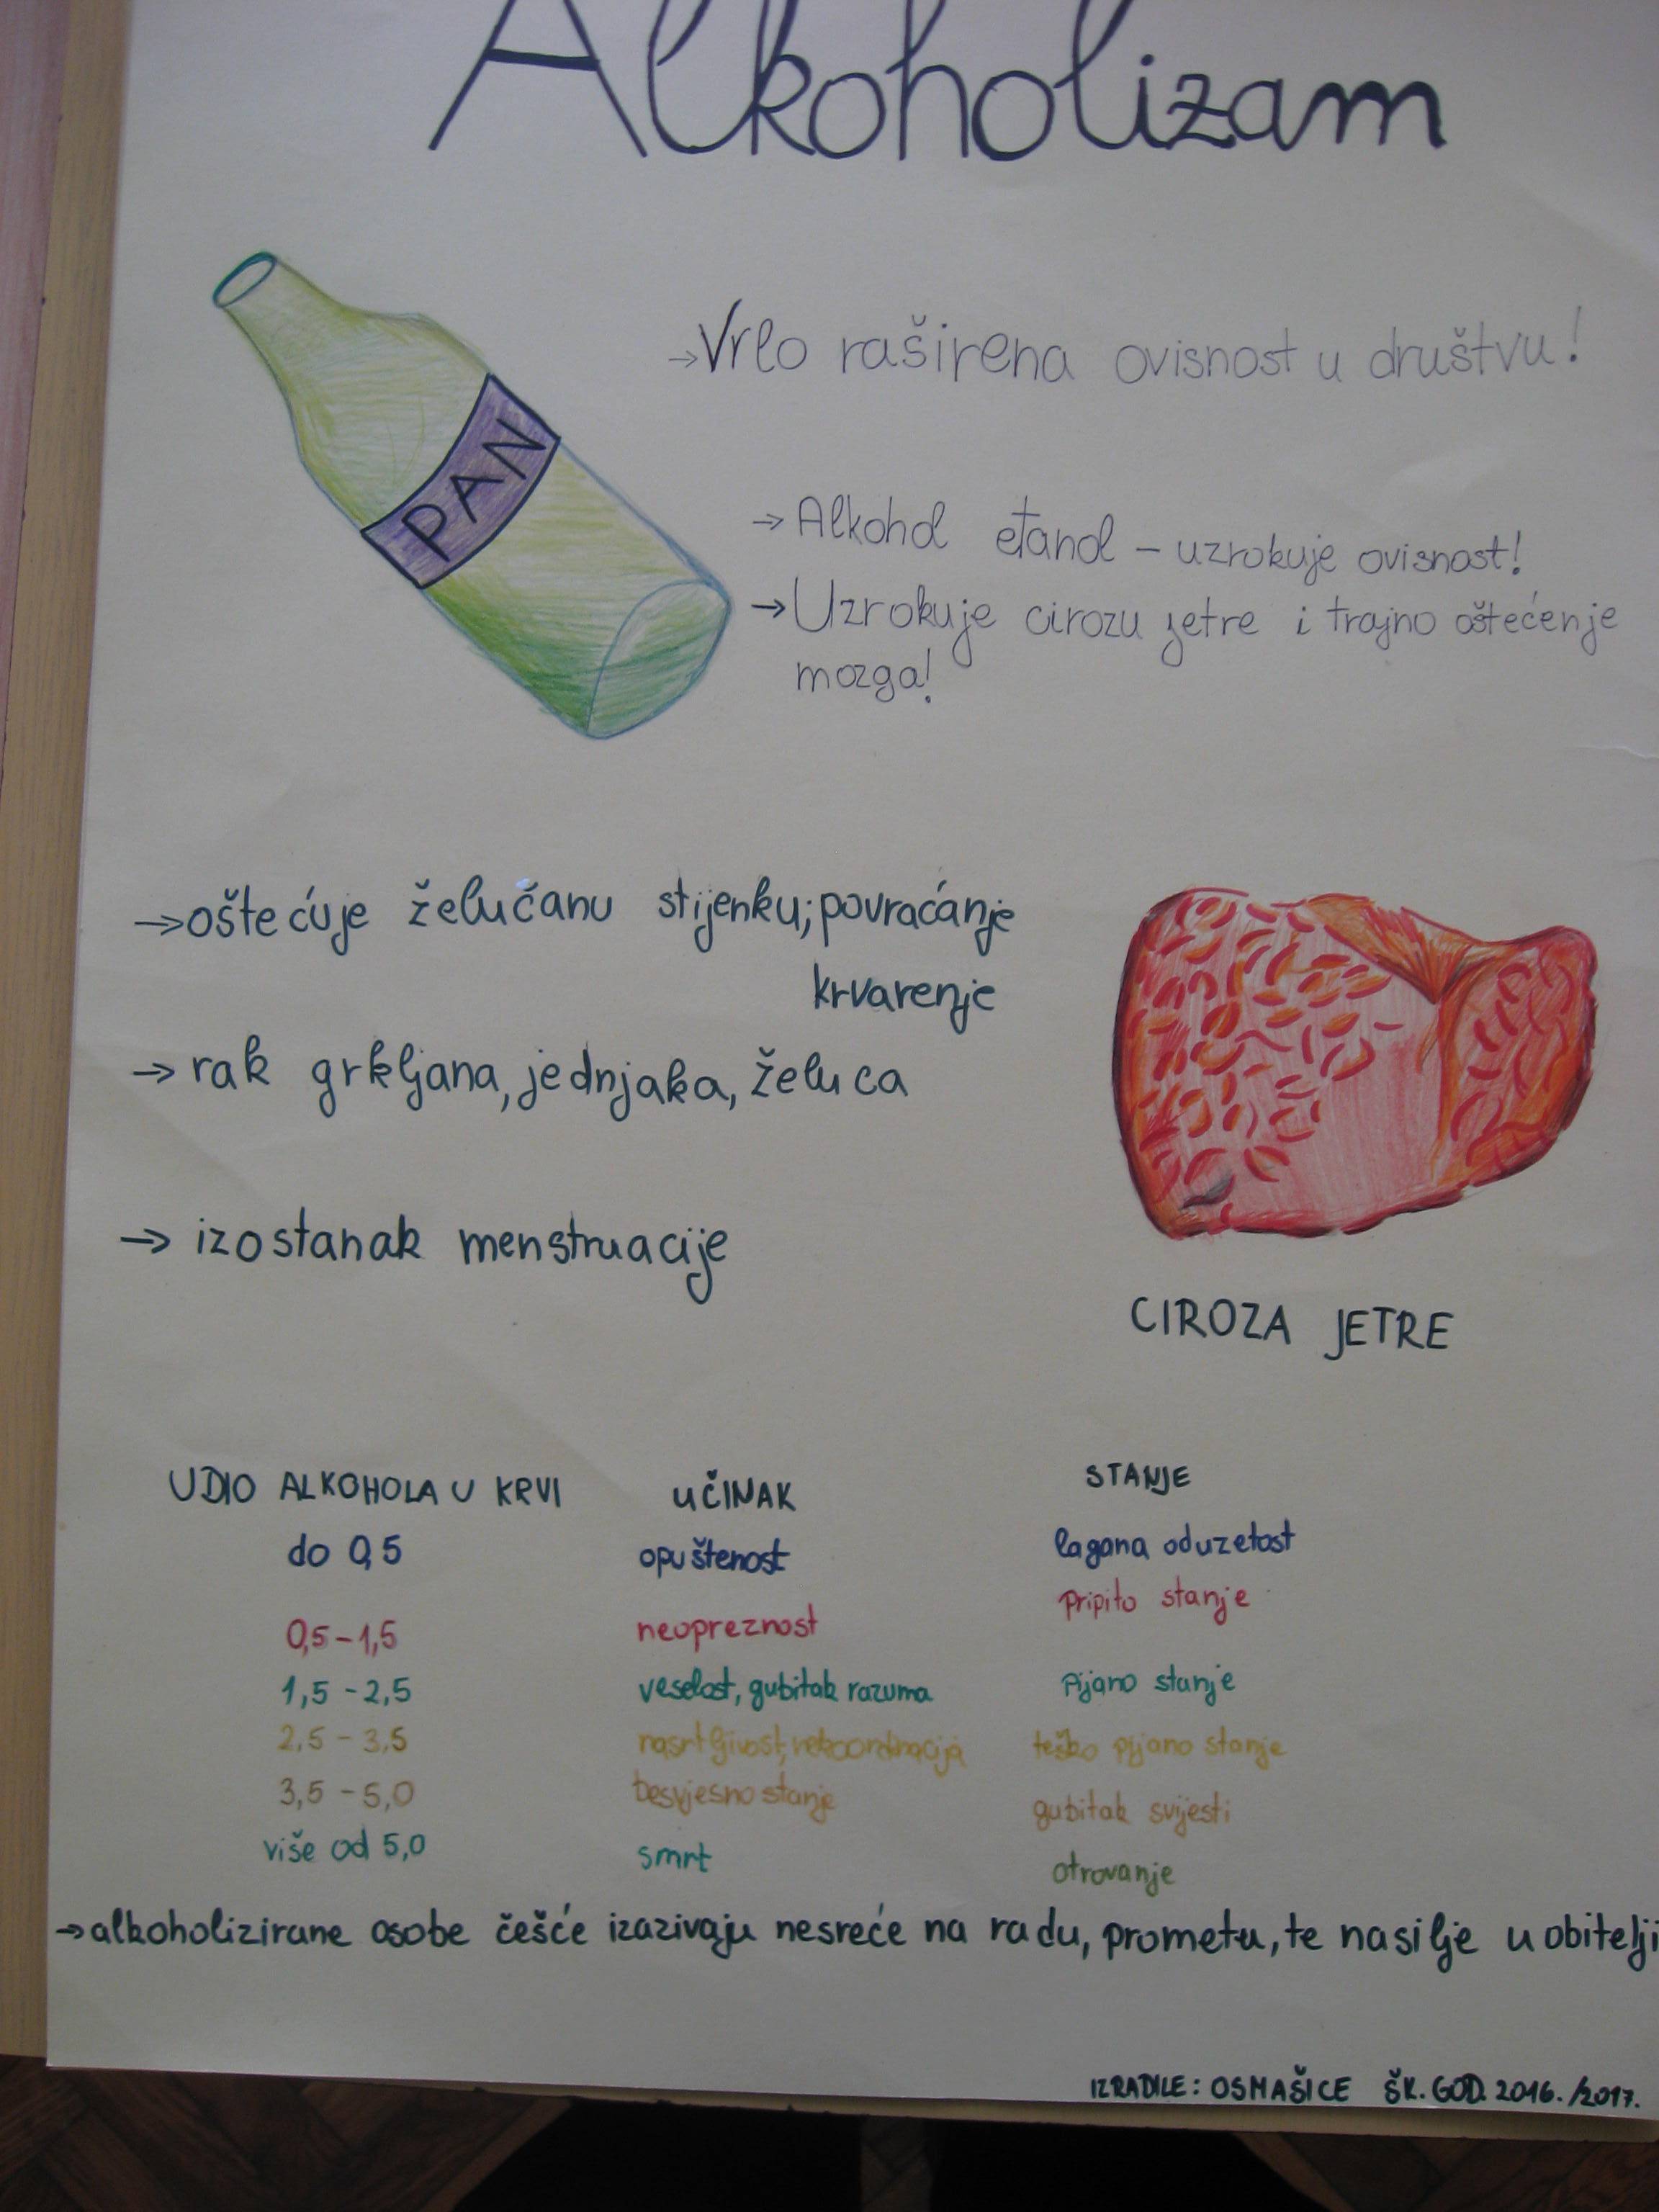 Alkoholizam
PAN
→Vrlo raširena ovisnost u društvu!
→Alkohol etanol – uzrokuje ovisnost!
→Uzrokuje cirozu jetre i trajno oštećenje
mozga!
→oštećuje želučanu stijenku; povraćanje
krvarenje
→ rak grkljana, jednjaka, želuca
→ izostanak menstruacije
CIROZA JETRE
UDIO ALKOHOLA U KRVI UČINAK STANJE
do 0,5 opuštenost lagana oduzetost
0,5-1,5 neopreznost pripito stanje
1,5-2,5 veselost, gubitak razuma Pijano stanje
2,5-3,5 nasrtljivost, nekoordinacija teško pijano stanje
3,5-5,0 besvjesno stanje gubitak svijesti
više od 5,0 smrt otrovanje
→alkoholizirane osobe češće izazivaju nesreće na radu, prometu, te nasilje u obitelji
IZRADILE: OSMAŠICE ŠK. GOD. 2016./2017.